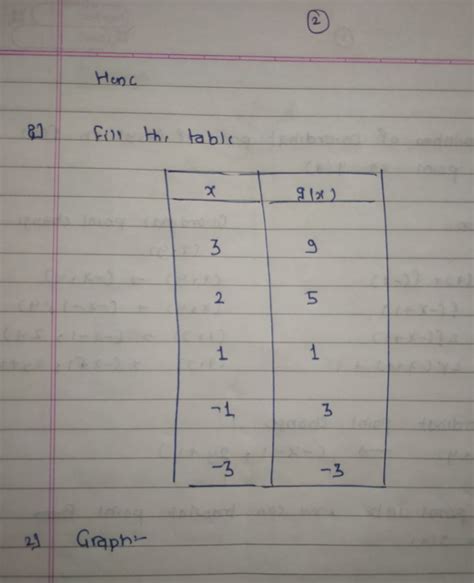 2
Henc
1.] Fill the table
x g(x)
3 9
2 5
1 1
-1 3
-3 -3
2.] Graph:-